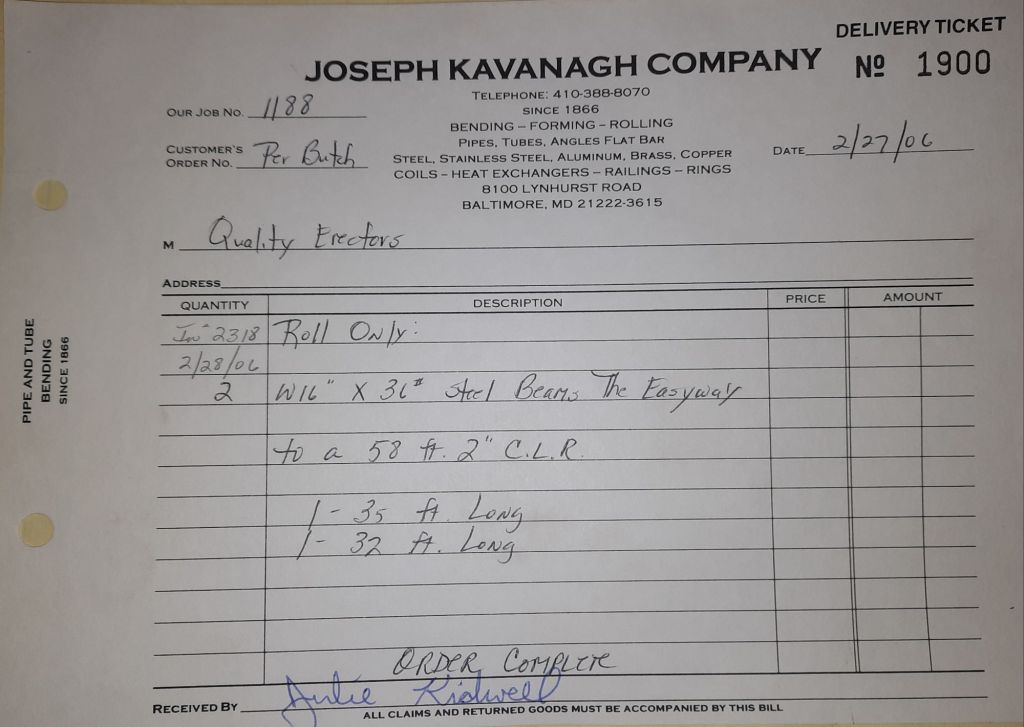 DELIVERY TICKET
Nº 1900
JOSEPH KAVANAGH COMPANY
TELEPHONE: 410-388-8070
SINCE 1866
BENDING – FORMING – ROLLING
PIPES, TUBES, ANGLES FLAT BAR
STEEL, STAINLESS STEEL, ALUMINUM, BRASS, COPPER
COILS – HEAT EXCHANGERS – RAILINGS – RINGS
8100 LYNHURST ROAD
BALTIMORE, MD 21222-3615
OUR JOB NO. 1188
CUSTOMER'S ORDER NO. Per Butch
DATE 2/27/06
M Quality Erectors
ADDRESS
QUANTITY DESCRIPTION PRICE AMOUNT
Inv 2318 Roll Only:
2/28/06
2 W16" X 36# Steel Beams The Easyway
to a 58 ft. 2" C.L.R.
1- 35 ft. Long
1- 32 ft. Long
ORDER COMPLETE
RECEIVED BY Julie Kidwell
ALL CLAIMS AND RETURNED GOODS MUST BE ACCOMPANIED BY THIS BILL
PIPE AND TUBE
BENDING
SINCE 1866